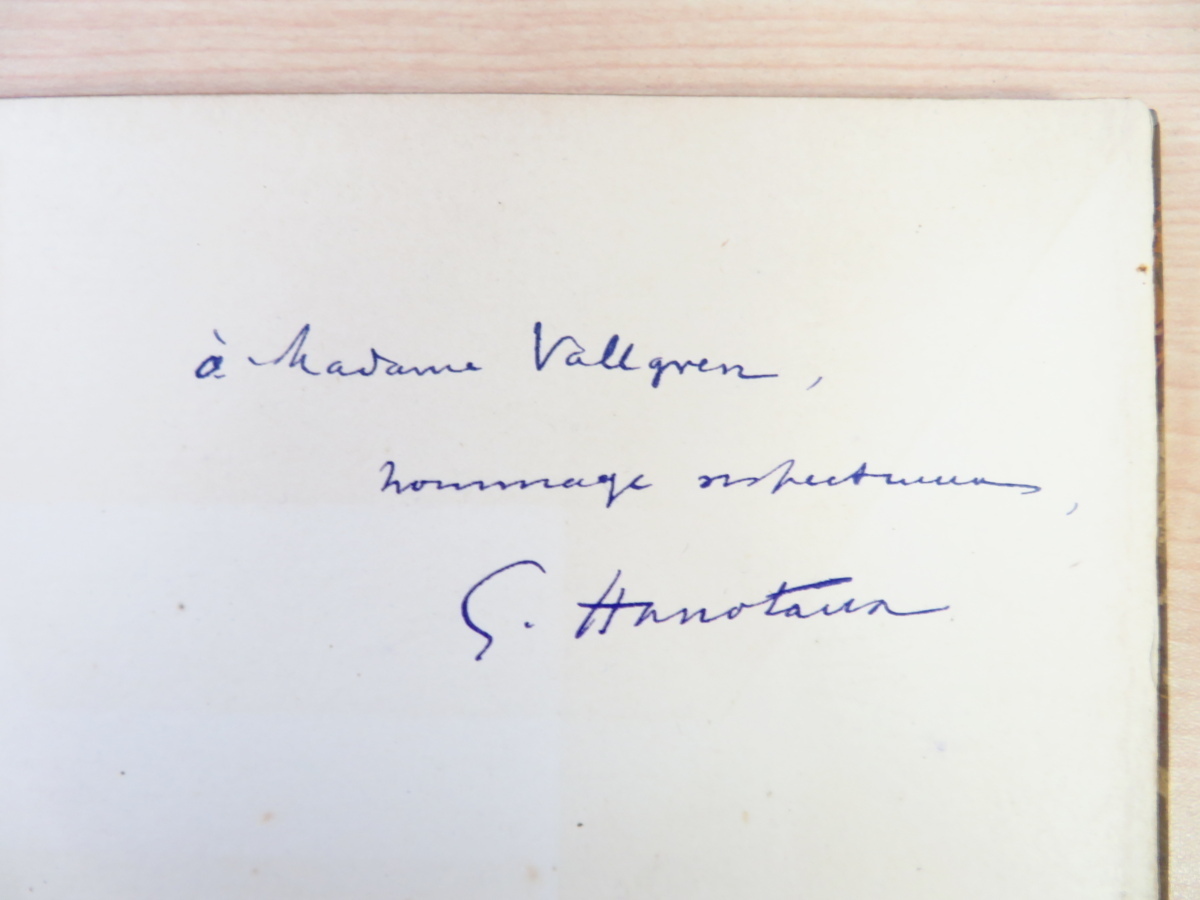 à Madame Vallgren,
hommage respectueux,
G. Hanotaux